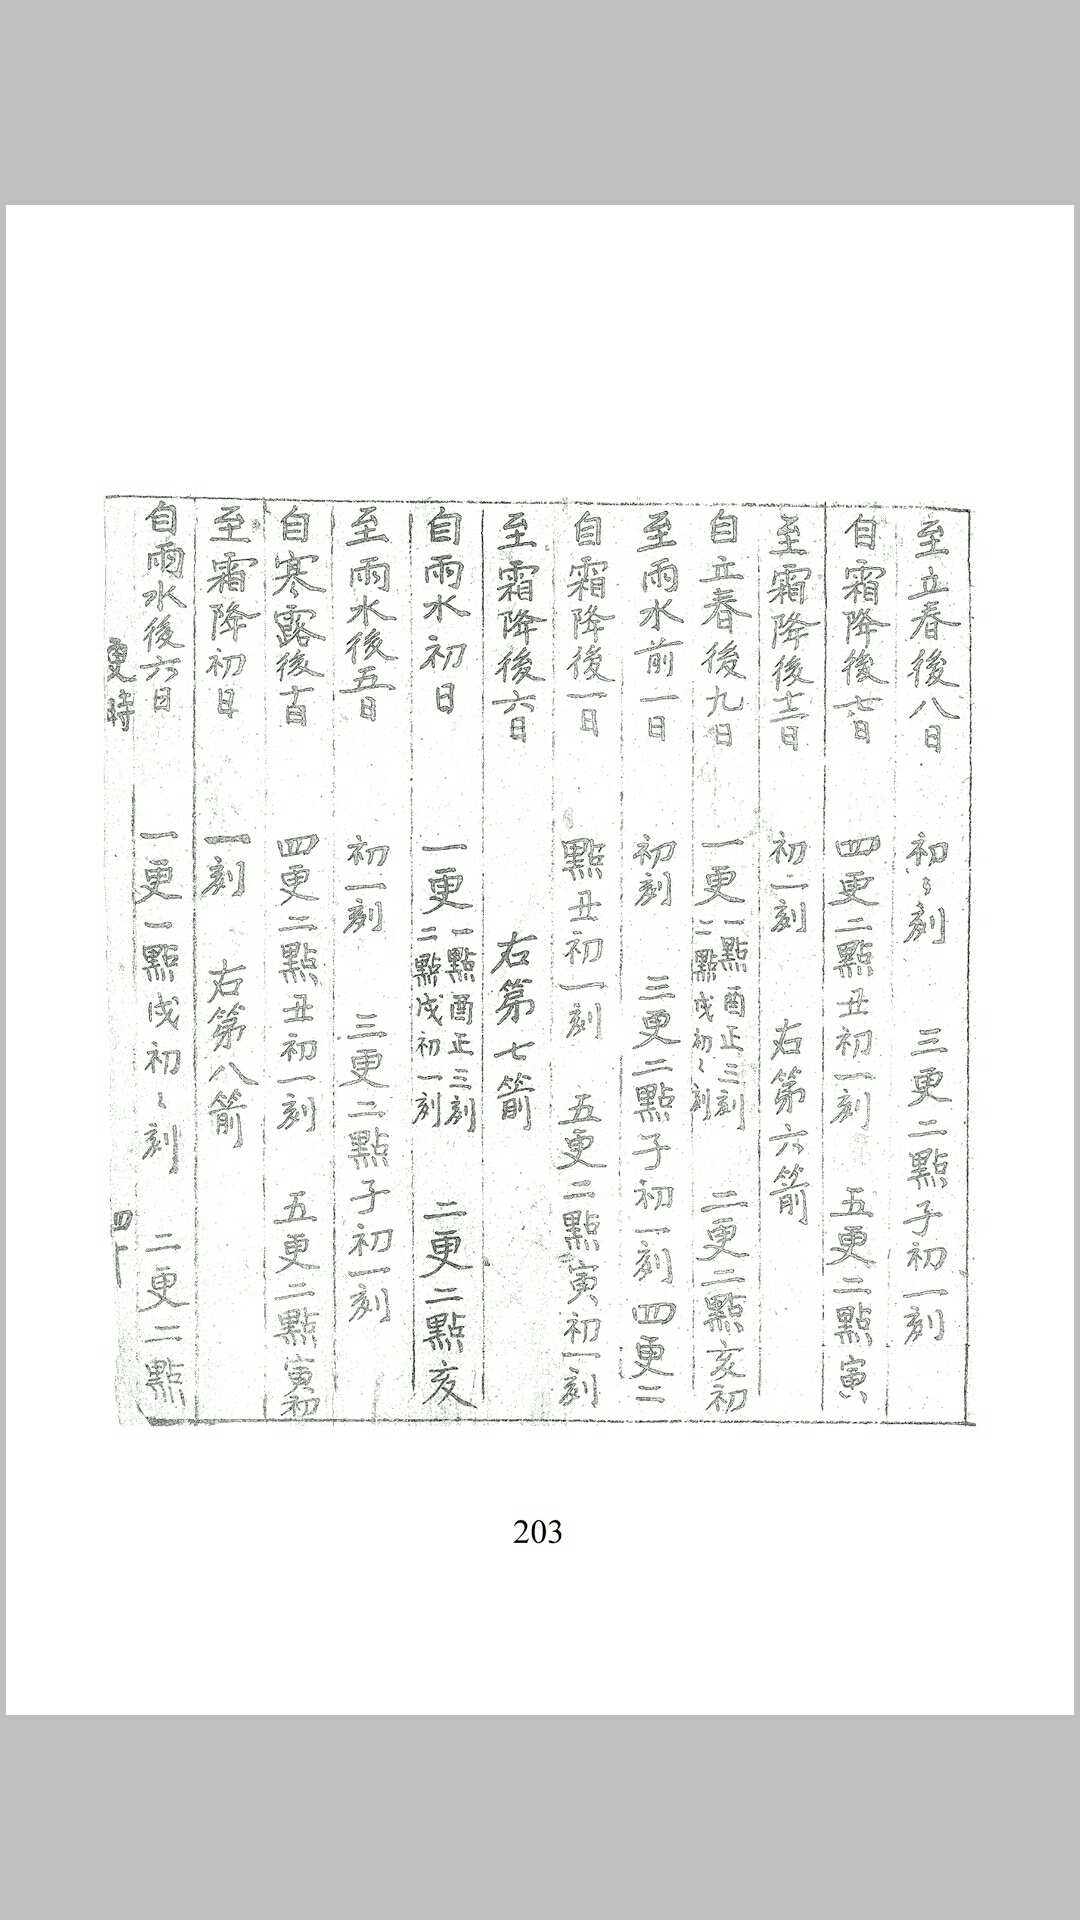 至立春後八日 初〻刻 三更二點子初一刻
自霜降後七日 四更二點丑初一刻 五更二點寅
至霜降後十二日 初二刻 右第六箭
自立春後九日 一更一點酉正三刻二點戌初〻刻 二更二點亥初
至雨水前一日 初刻 三更二點子初一刻 四更二
自霜降後一日 點丑初一刻 五更二點寅初一刻
至霜降後六日 右第七箭
自雨水初日 一更一點酉正三刻二點戌初一刻 二更二點亥
至雨水後五日 初一刻 三更二點子初一刻
自寒露後十日 四更二點丑初一刻 五更二點寅初
至霜降初日 一刻 右第八箭
自雨水後六日 一更一點戌初〻刻 二更二點
更時 四十
203